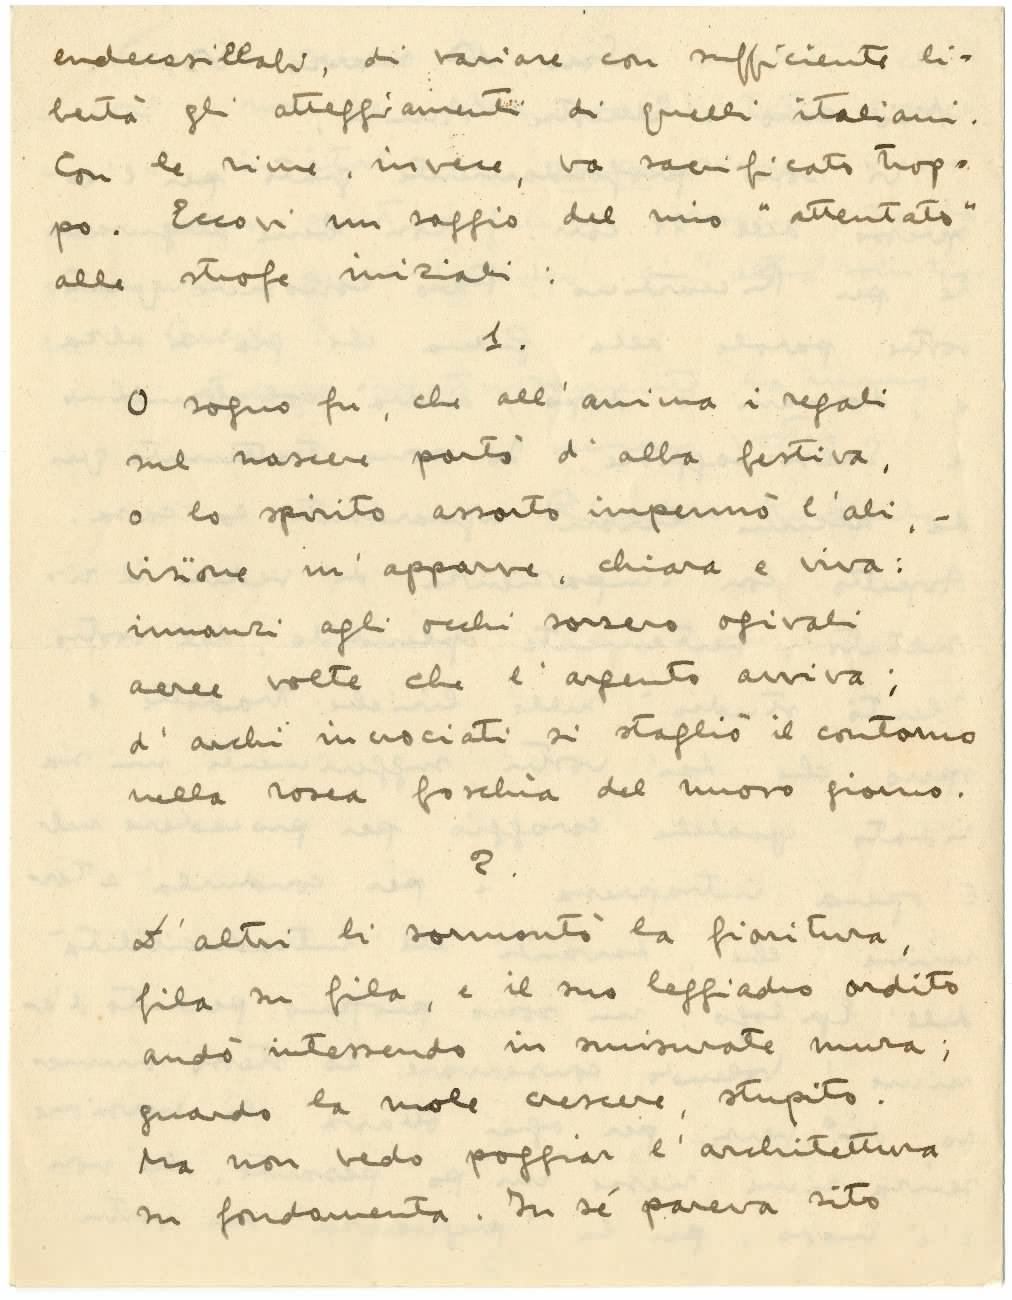 endecasillabi, di variare con sufficiente li-
bertà gli atteggiamenti di quelli italiani.
Con le rime, invece, va sacrificato trop-
po. Eccovi un saggio del mio "attentato"
alle strofe iniziali:
1.
O sogno fu, che all'anima i regali
sul nascere portò d'alba festiva,
o lo spirito assorto impennò l'ali, -
visïone m'apparve, chiara e viva:
innanzi agli occhi sorsero ogivali
aeree volte che l'argento avviva;
d'archi incrociati si stagliò il contorno
nella rosea foschia del nuovo giorno.
2.
D'altri li sormontò la fioritura,
fila su fila, e il suo leggiadro ordito
andò intessendo in smisurate mura;
guardo la mole crescere, stupito.
Ma non vedo poggiar l'architettura
su fondamenta. In sé pareva sito